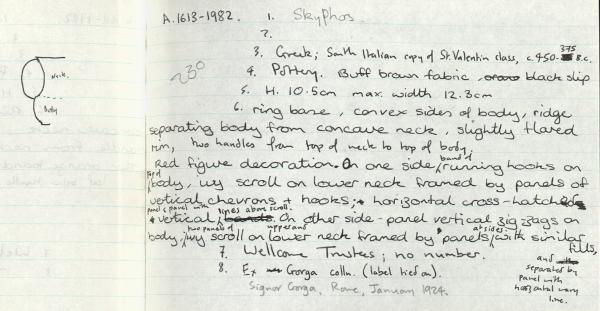 A.1613-1982. 1. Skyphos.
2.
3. Greek; South Italian copy of St. Valentin class, c. 450-375 B.C.
230
4. Pottery. Buff brown fabric, black slip
Neck.
5. H. 10.5cm max. width 12.3cm
Body
6. ring base, convex sides of body, ridge
separating body from concave neck, slightly flared
rim, two handles from top of neck to top of body,
Red figure decoration. On one side, band of running hooks on
top of body, ivy scroll on lower neck framed by panels of
vertical chevrons + hooks; + horizontal cross-hatched
panel + panel with lines above scroll.
+ vertical, On other side - panel vertical zig zags on
body, two panels of ivy scroll on upper and lower neck framed by panels at sides with similar
fills, and separated by panel with horizontal wavy line.
7. Wellcome Trustees; no number.
8. Ex Gorga colln. (label tied on).
Signor Gorga, Rome, January 1924.